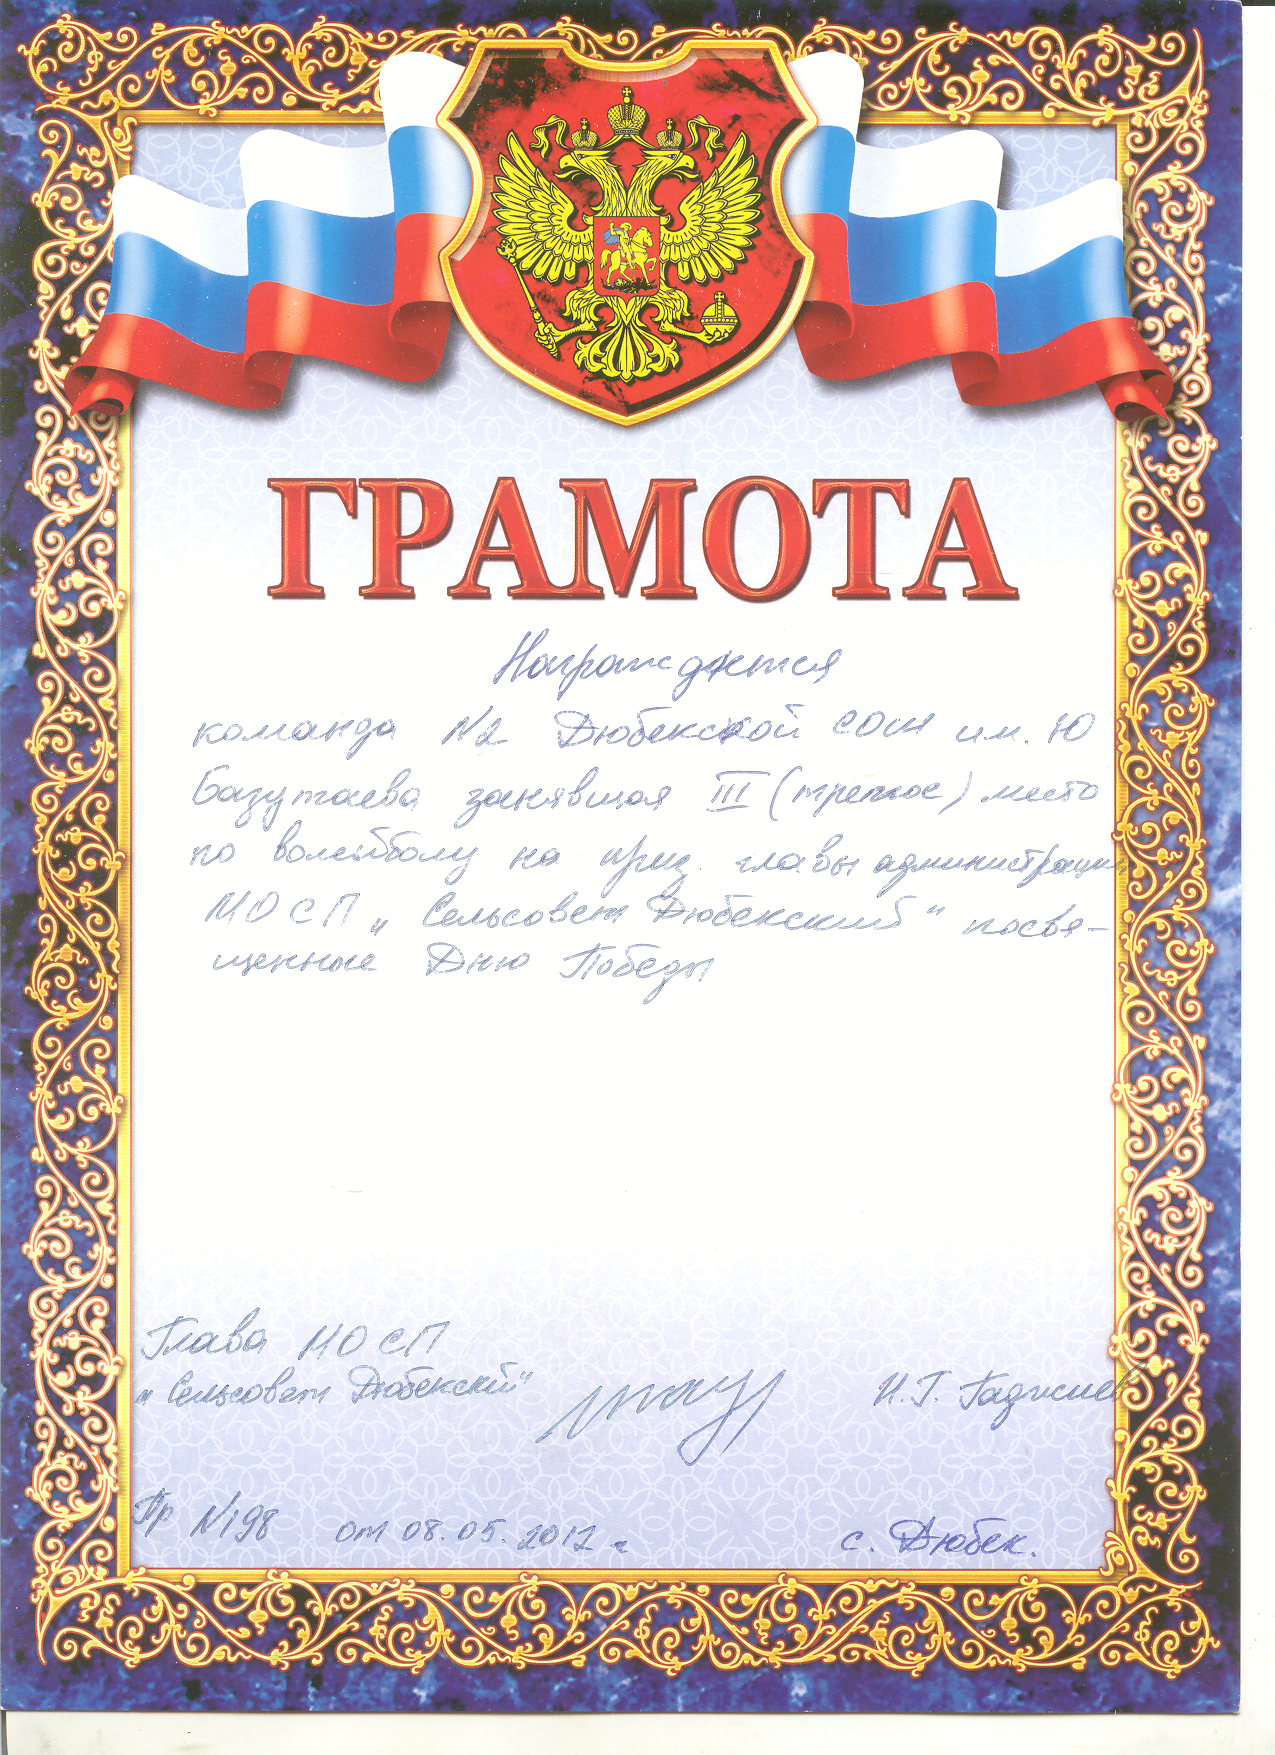 ГРАМОТА
Награждается
команда №2 Дюбекской СОШ им. Ю
Базутаева занявшая III (третие) место
по волейболу на приз. главы администрации
МО СП „Сельсовет Дюбекский“ посвя-
щенные Дню Победы
Глава МО СП
„Сельсовет Дюбекский“
И.Г. Гаджиев
Пр №198 от 08.05.2012 г
с. Дюбек.